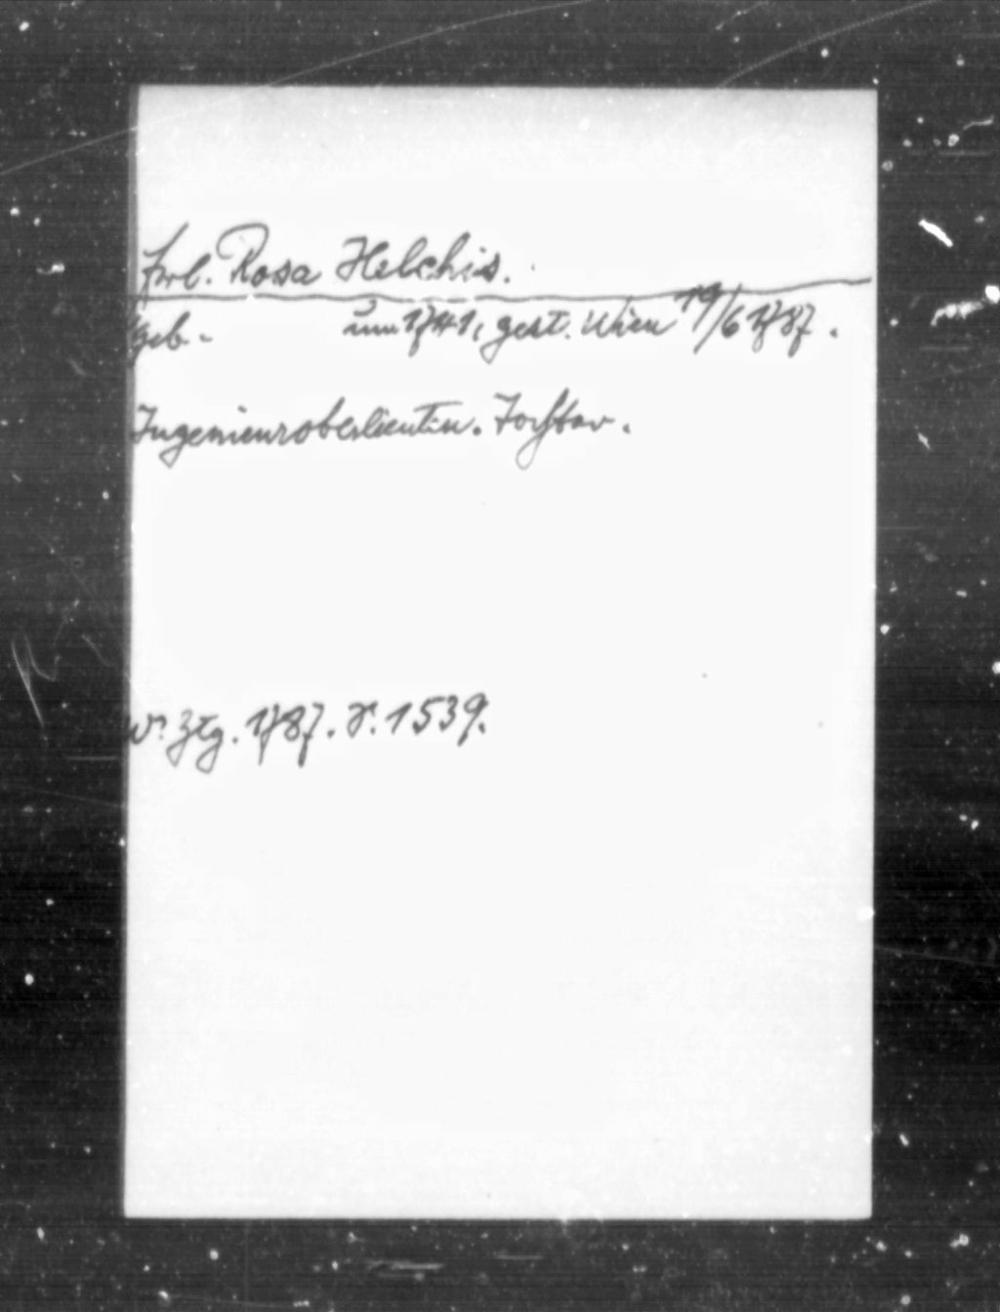 Frl. Rosa Helchis.
geb. um 1741, gest. Wien 19/6 1787.
Ingenieuroberlieutn. Tochter.
Wr. Ztg. 1787. S. 1539.